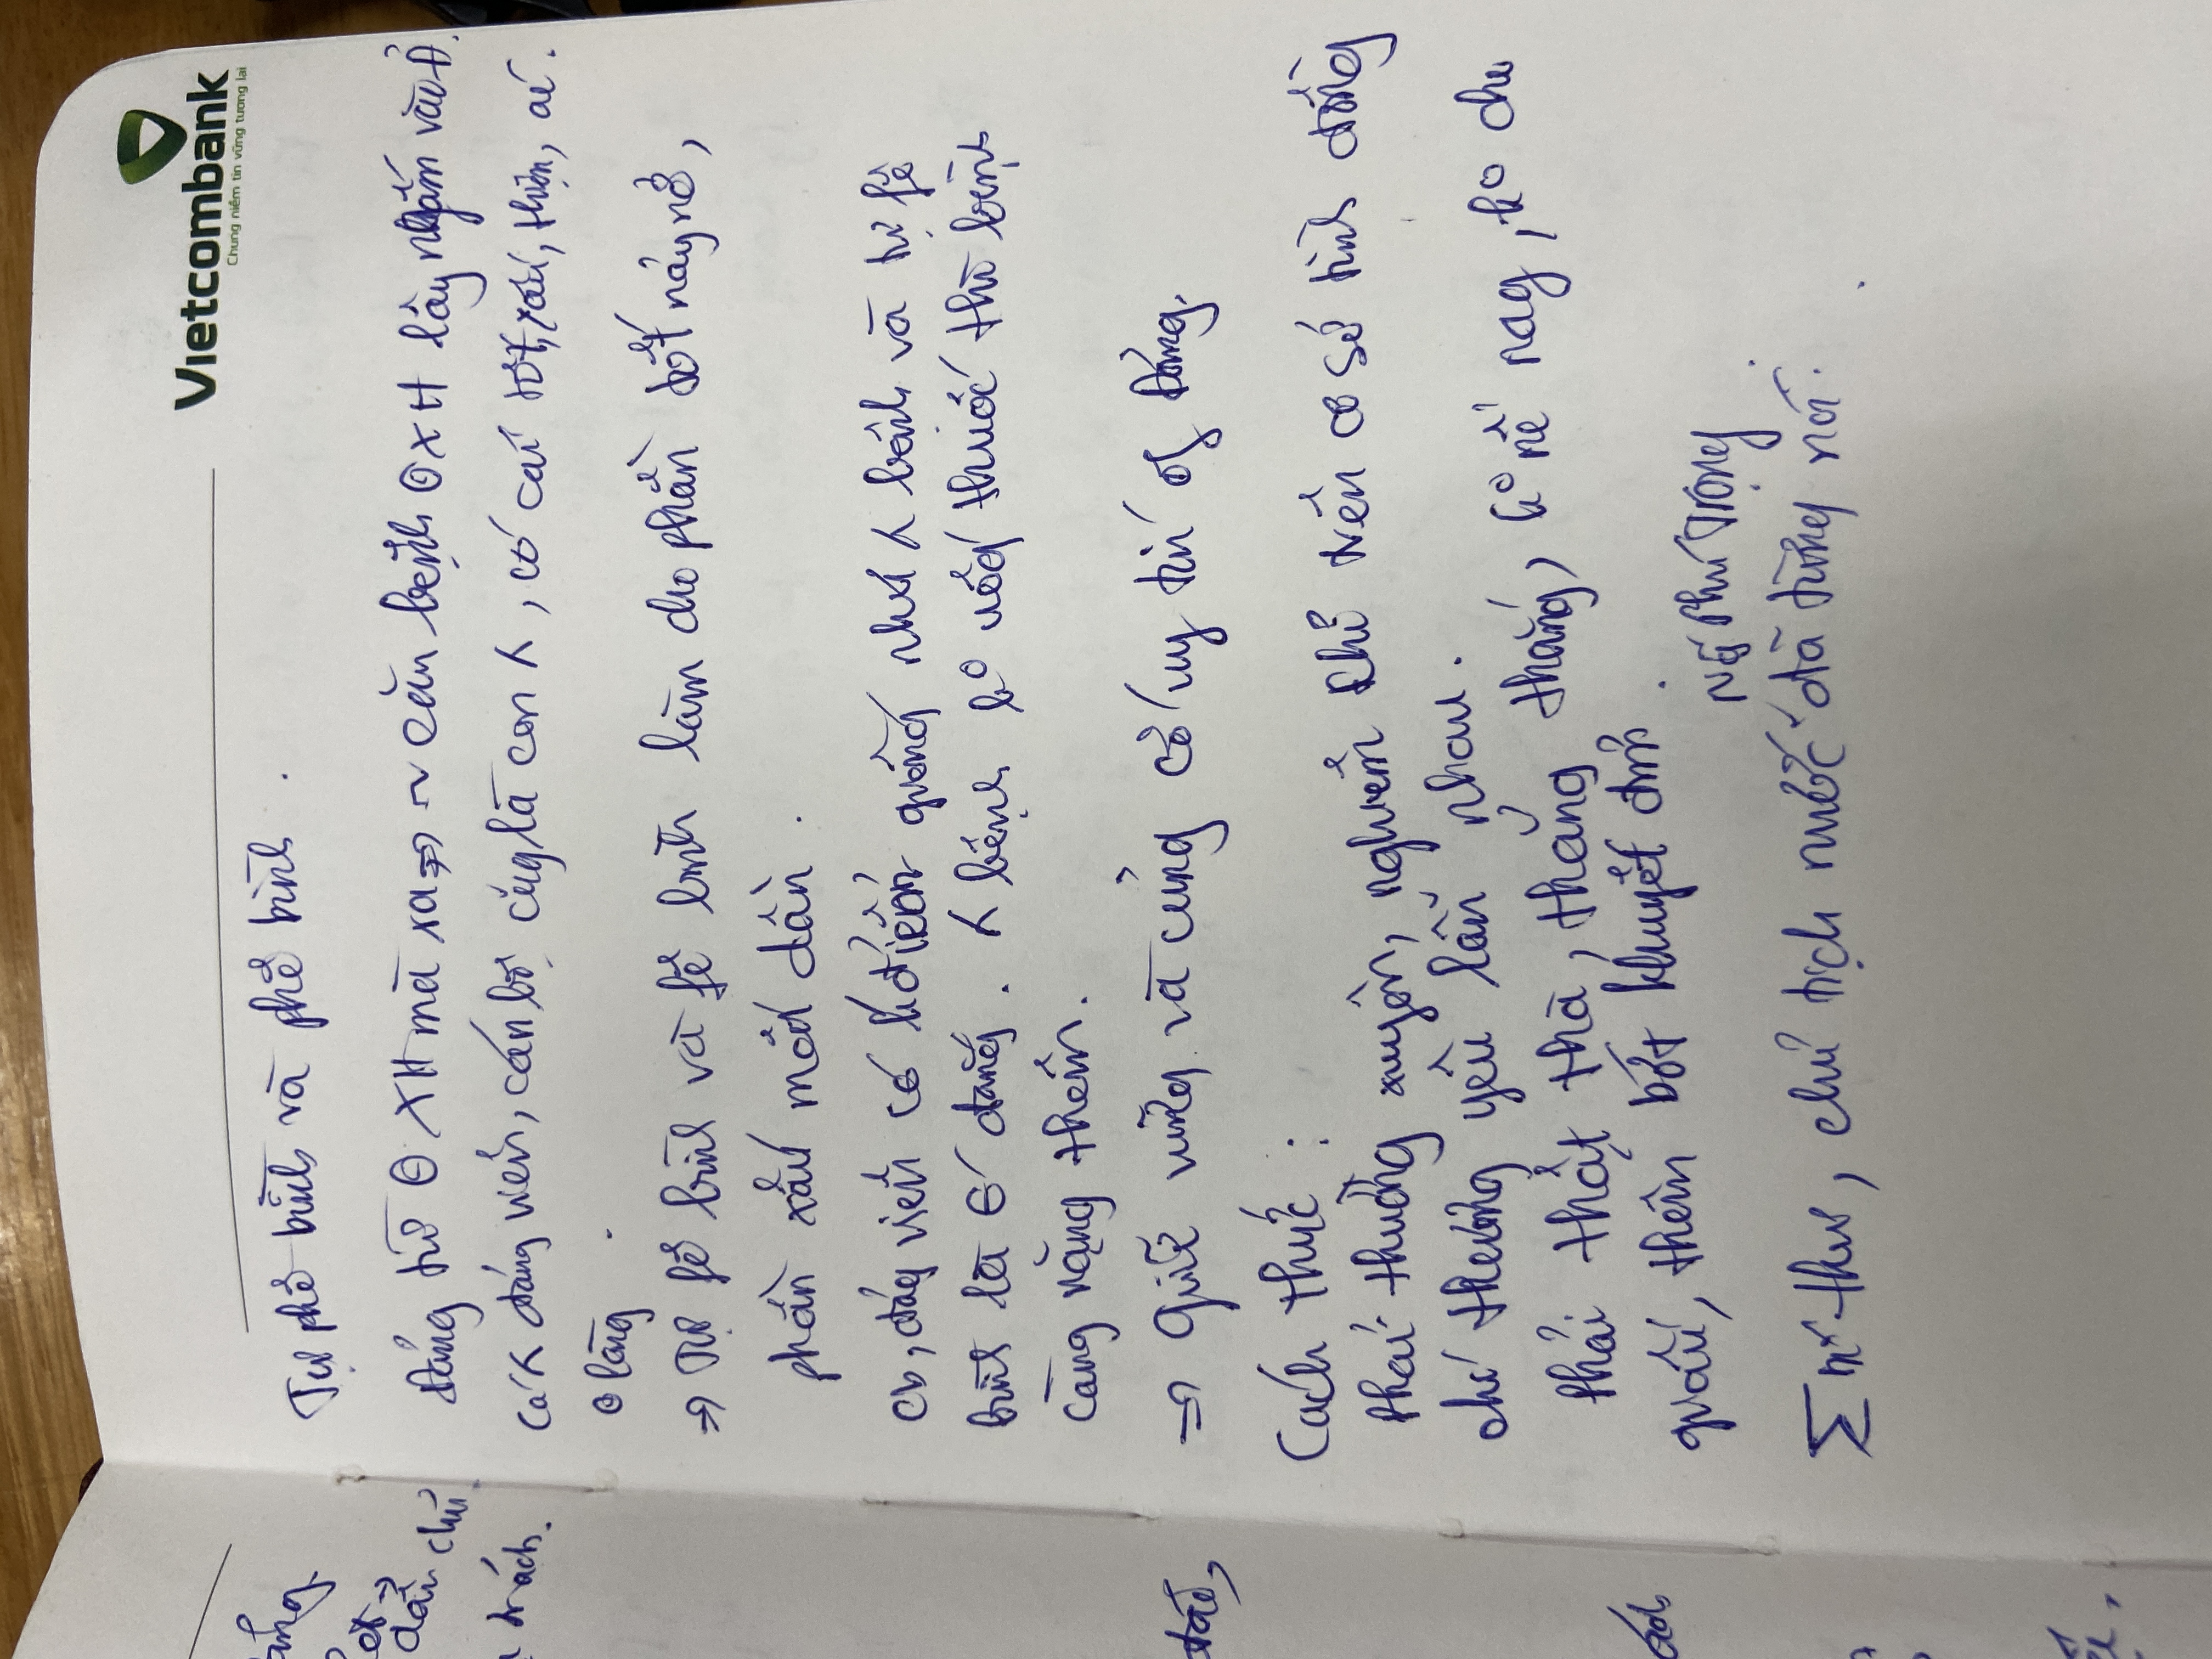 ảng
ết →
dân chủ
trách.
Vietcombank
Chung niềm tin vững tương lai
Tự phê bình và phê bình.
Đảng từ ⊙ XH mà ra => ~ căn bệnh ⊙ XH lây ngấm vào Đ.
Các đảng viên, cán bộ cũg là con ʎ, có cái tốt, xấu, thiện, ác.
⊙ lòng.
=> Tự fê bình và fê bình làm cho phần tốt nảy nở,
phần xấu mất dần.
cb, đảg viên có k điểm giống như ʎ bệnh và tự fê
bình là đắng. ʎ bệnh kº uốg thuốc thì bệnh
càng nặng thêm.
=> Giữ vững và củng cố uy tín of Đảng.
Cách thức:
Phải thường xuyên, nghiêm chỉ trên cơ sở tình đồng
chí thương yêu lẫn nhau.
Phải thật thà, thẳng thắng, kº nể nag, kº che
giấu, thêm bớt khuyết điểm.
Ng Phú Trọng
Σ bí thư, chủ tịch nước đã từng nói: